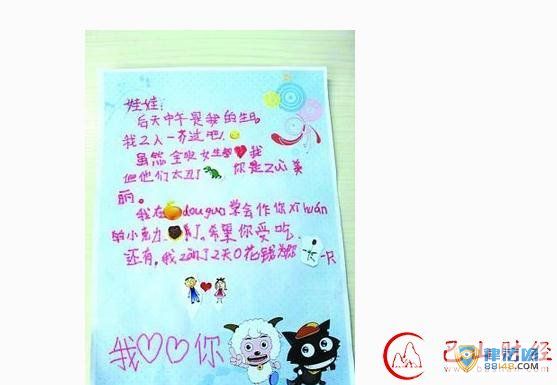 娃娃:
后天中午是我的生日,
我2人一齐过吧!
虽然全班女生都❤我
但他们太丑了 你是Zui美
丽。
我在 douguo学会作你Xi huán
的小克力 了,希望你爱吃
还有,我zan了2天0花钱为你 一只
我♡♡你
88148.com